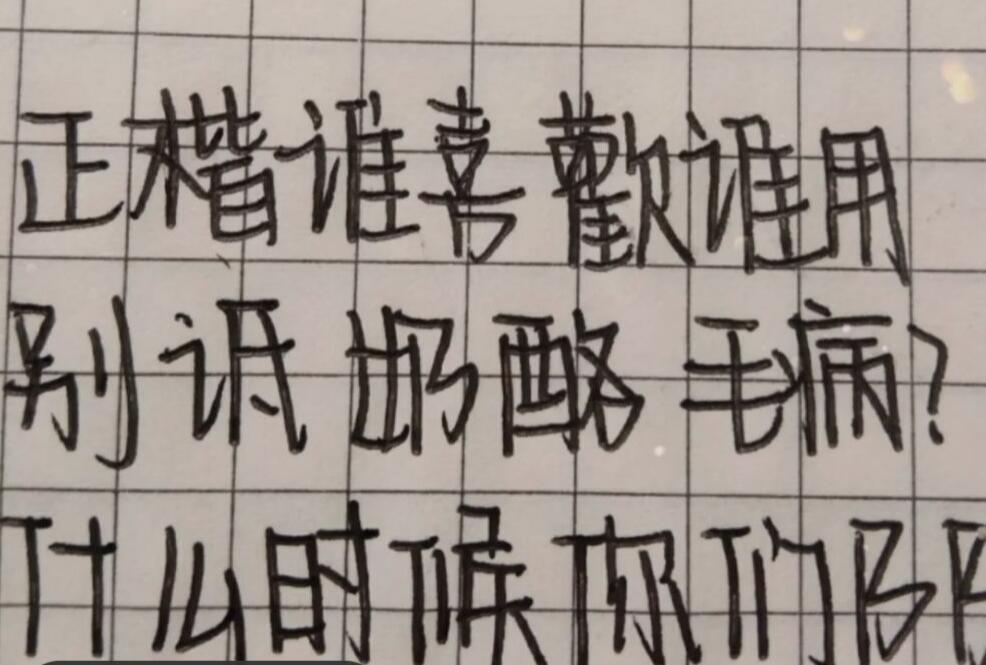 正楷谁喜歡谁用
别诋奶酪毛病?
什么时候你们